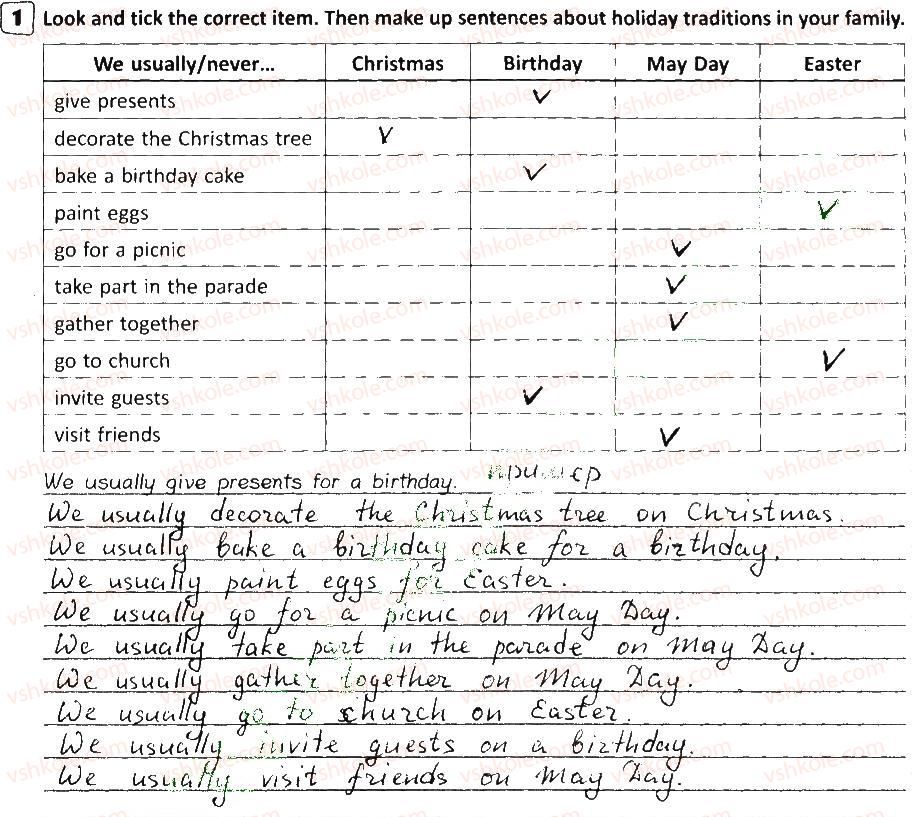 1 Look and tick the correct item. Then make up sentences about holiday traditions in your family.
We usually/never... Christmas Birthday May Day Easter
give presents ✓
decorate the Christmas tree ✓
bake a birthday cake ✓
paint eggs ✓
go for a picnic ✓
take part in the parade ✓
gather together ✓
go to church ✓
invite guests ✓
visit friends ✓
We usually give presents for a birthday. пример
We usually decorate the Christmas tree on Christmas.
We usually bake a birthday cake for a birthday.
We usually paint eggs for Easter.
We usually go for a picnic on May Day.
We usually take part in the parade on May Day.
We usually gather together on May Day.
We usually go to church on Easter.
We usually invite guests on a birthday.
We usually visit friends on May Day.